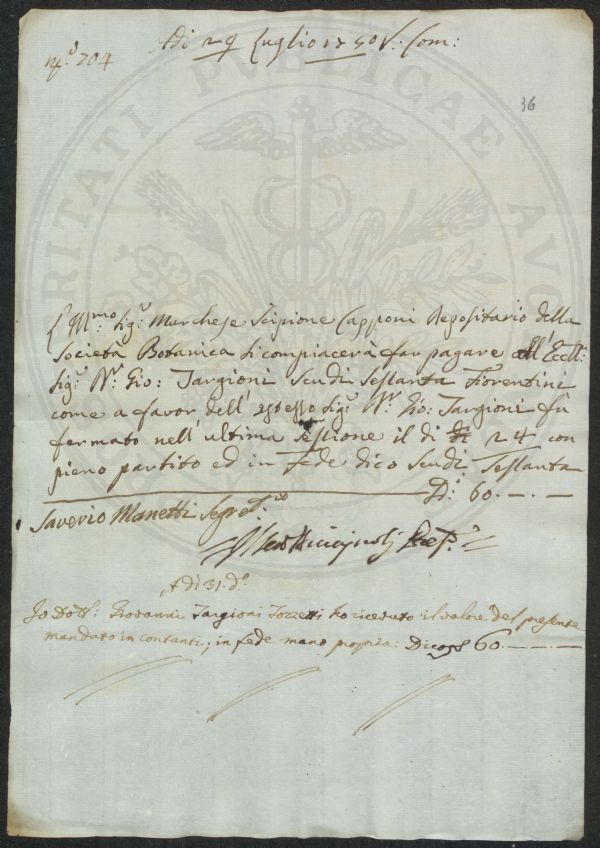 Adì 29 Luglio 1750 V: Com:
N.º 204
36
L'Ill.mo Sig.r Marchese Scipione Capponi Depositario della
Società Botanica si compiacerà far pagare all' Eccll:
Sig.r Dr. Gio: Targioni Scudi Sessanta Fiorentini
come a favor dell' istesso Sig.r Dr. Gio: Targioni fù
fermato nell' ultima sessione il dì 24 con
pieno partito ed in fede dico Scudi Sessanta
D.i 60.—.—
Saverio Manetti Segret.rio
Adì 31. do
Io Dott: Giovanni Targioni Tozzetti ho ricevuto il valore del presente
mandato in contanti, in fede mano propria: Dico 60.—.—
RITATI PUBLICAE